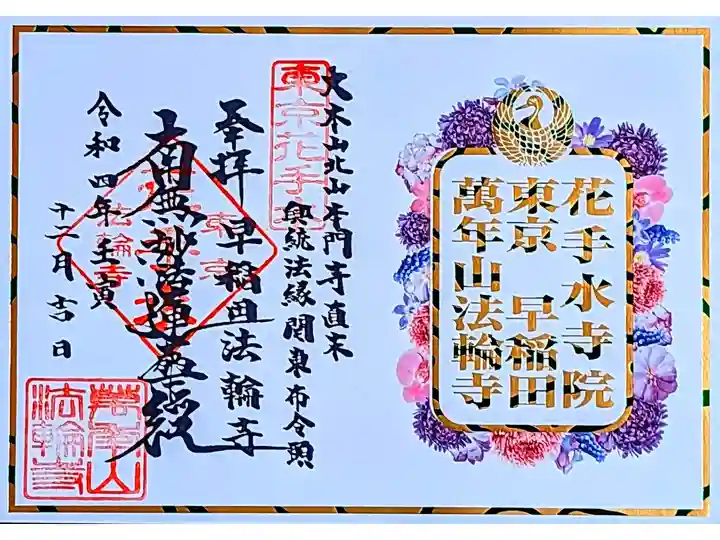 花手水寺院
東京 早稲田
萬年山法輪寺
大本山北山本門寺直末
興統法縁関東布令照
東京花手水
奉拝 早稲田法輪寺
南無妙法蓮華経
東京
法輪寺
令和四年壬寅
十二月吉日
萬年山
法輪寺